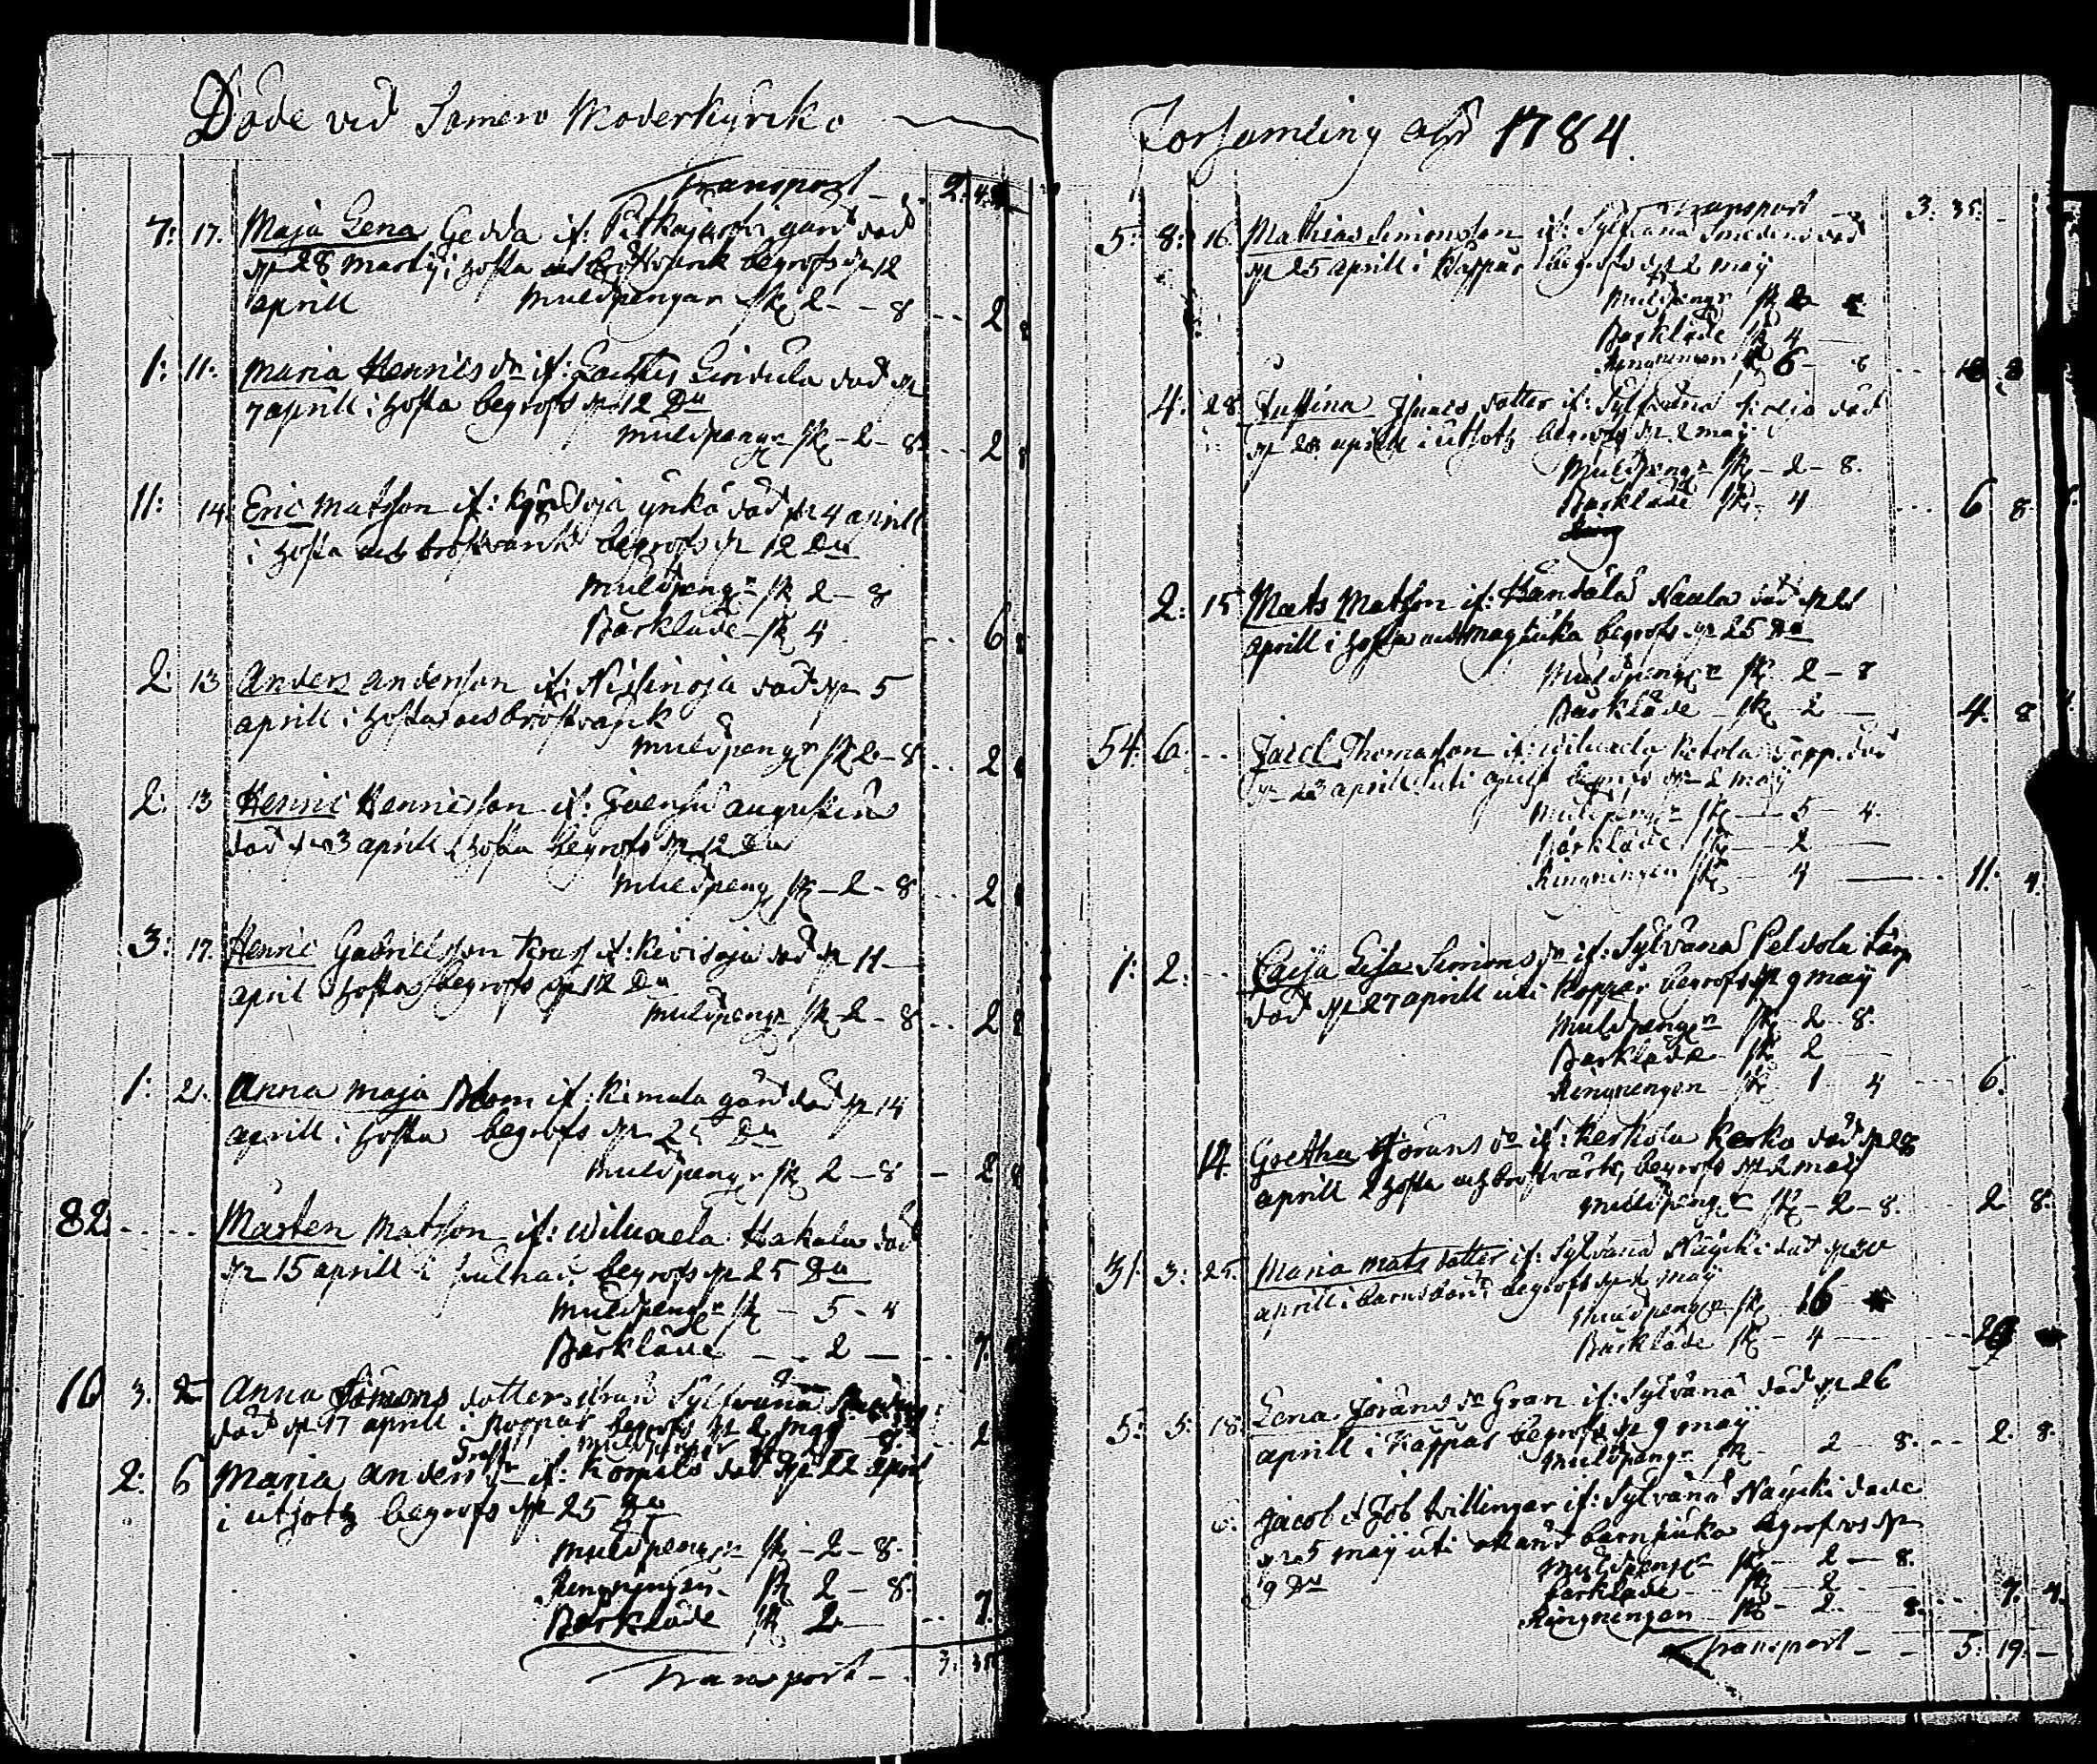 Döde vid Somero Moderkyrko
Transport - 2. 4
7: 17. Maja Lena Gedda if: Pitkajarvi gård död
d 28 marty i hosta och bröstvärk begrofs d 12
aprill Muldpengar sk 2 - - 8 - - 2 8
1: 11. Maria Henrics dr if: Lautela Lindula död d
7 aprill i hosta begrofs d 12 Du
muldpengr sk - 2 - 8 - - 2 8
11: 14. Eric Matsson if: oja ynkö död d 4 aprill
i hosta och bröstvärk begrofs d 12 Du
Muldpengr sk 2 - 8
Bårkläde - sk 4 - - 6 8
2: 13 Anders Anderson if: Nisinoja död d 5
aprill i hosta och bröstvärk
Muldpengr sk 2 - 8 - - 2 8
2: 13 Henric Henricsson if: Jvensu augustin
död d 3 aprill i hosta begrofs d 12 Du
Muldpeng sk - 2 - 8 - - 2 8
3: 17. Henric Gabrielsson Kras if: Kivisoja död d 11
april i hosta begrofs d 12 Du
Muldpengr sk - 2 - 8 - - 2 8
1: 21. Anna Maja Blom if: Kimala gård död d 14
aprill i hosta begrofs d 25 Du
Muldpengr sk 2 - 8 - 2 8
82 - - - Mårten Matsson if: Wiluaela Hakala död
d 15 aprill i begrofs d 25 Du
Muldpengr sk - 5 - 4
Bårkläde - - 2 - - - 7.
10 3. 2 Anna Simons dotter ifrån Sylfvänä
död d 17 aprill i Koppar begrofs d 2 may
Muldpengar - 8. - - 2
2: 6 Maria Anders dr if: Korpela död d 22 april
i utsotz begrofs d 25 Du
Muldpengr sk - 2 - 8.
Ringningen - sk 2 - 8.
Bårkläde sk 2 - - - 7.
Transport - 3. 35
Forsamling Ahr 1784.
Transport - 3: 35: -
5: 8: 16 Mathias Simonsson if: Sylfvänä Smedens död
d 25 aprill i Kåppår begrofs d 2 may
Muldpengr sk 2
Bårkläde sk 4
Ringningen sk 6 - 8 - - 8
4: 28 Justina dotter if: Sylfvänä död
d 28 aprill i utsotz begrofs d 2 may
Muldpengr sk - 2 - 8.
Bårkläde sk - 4 - - - 6 8.
2: 15 Mats Matsson if: Naula död d
aprill i hosta och magsiuka begrofs d 25 Du
Muldpengr sk 2 - 8
Bårkläde - sk 2 - 4. 8
54. 6. - - Jacob Thomasson if: Wiluaela Ketola död
d 23 aprill uti begrofs d 2 may
Muldpengr sk - 5 - 4.
Bårkläde sk - 2 -
Ringningen sk - 4 - 11. 4.
1: 2: - - Caisa Lisa Simons dr if: Sylvänä Peldola tårp
död d 27 aprill uti Koppor begrofs d 9 may
Muldpengr sk 2 - 8.
Bårkläde sk 2 -
Ringningen sk 1 4 - - 6.
14. Gretha Jörans dr if: Kerkola Kerko död d 28
aprill i hosta och bröstvärk, begrofs d 2 may
Muldpengr sk - 2 - 8. - - 2 8.
31. 3: 25. Maria Mats dotter if: Sylvänä Näycki död d 30
aprill i barnsbörd begrofs d may
Muldpengr sk 16
Bårkläde sk - 4 - - - 20
5: 5: 18. Lena Jörans dr Gran if: Sylvänä död d 26
aprill i Kåppår begrofs d 9 may
Muldpengr sk - 2 - 8. - - 2. 8.
Jacob & Job tvillingar if: Sylvänä Näycki döde
d 5 may uti okänd barnsiuka begrofvos d
9 Du Muldpengr sk - 2 - 8.
Bårkläde - sk - 2. -
Ringningen sk - 2. 8. - - 7. 4.
Transport - - 5: 19. -